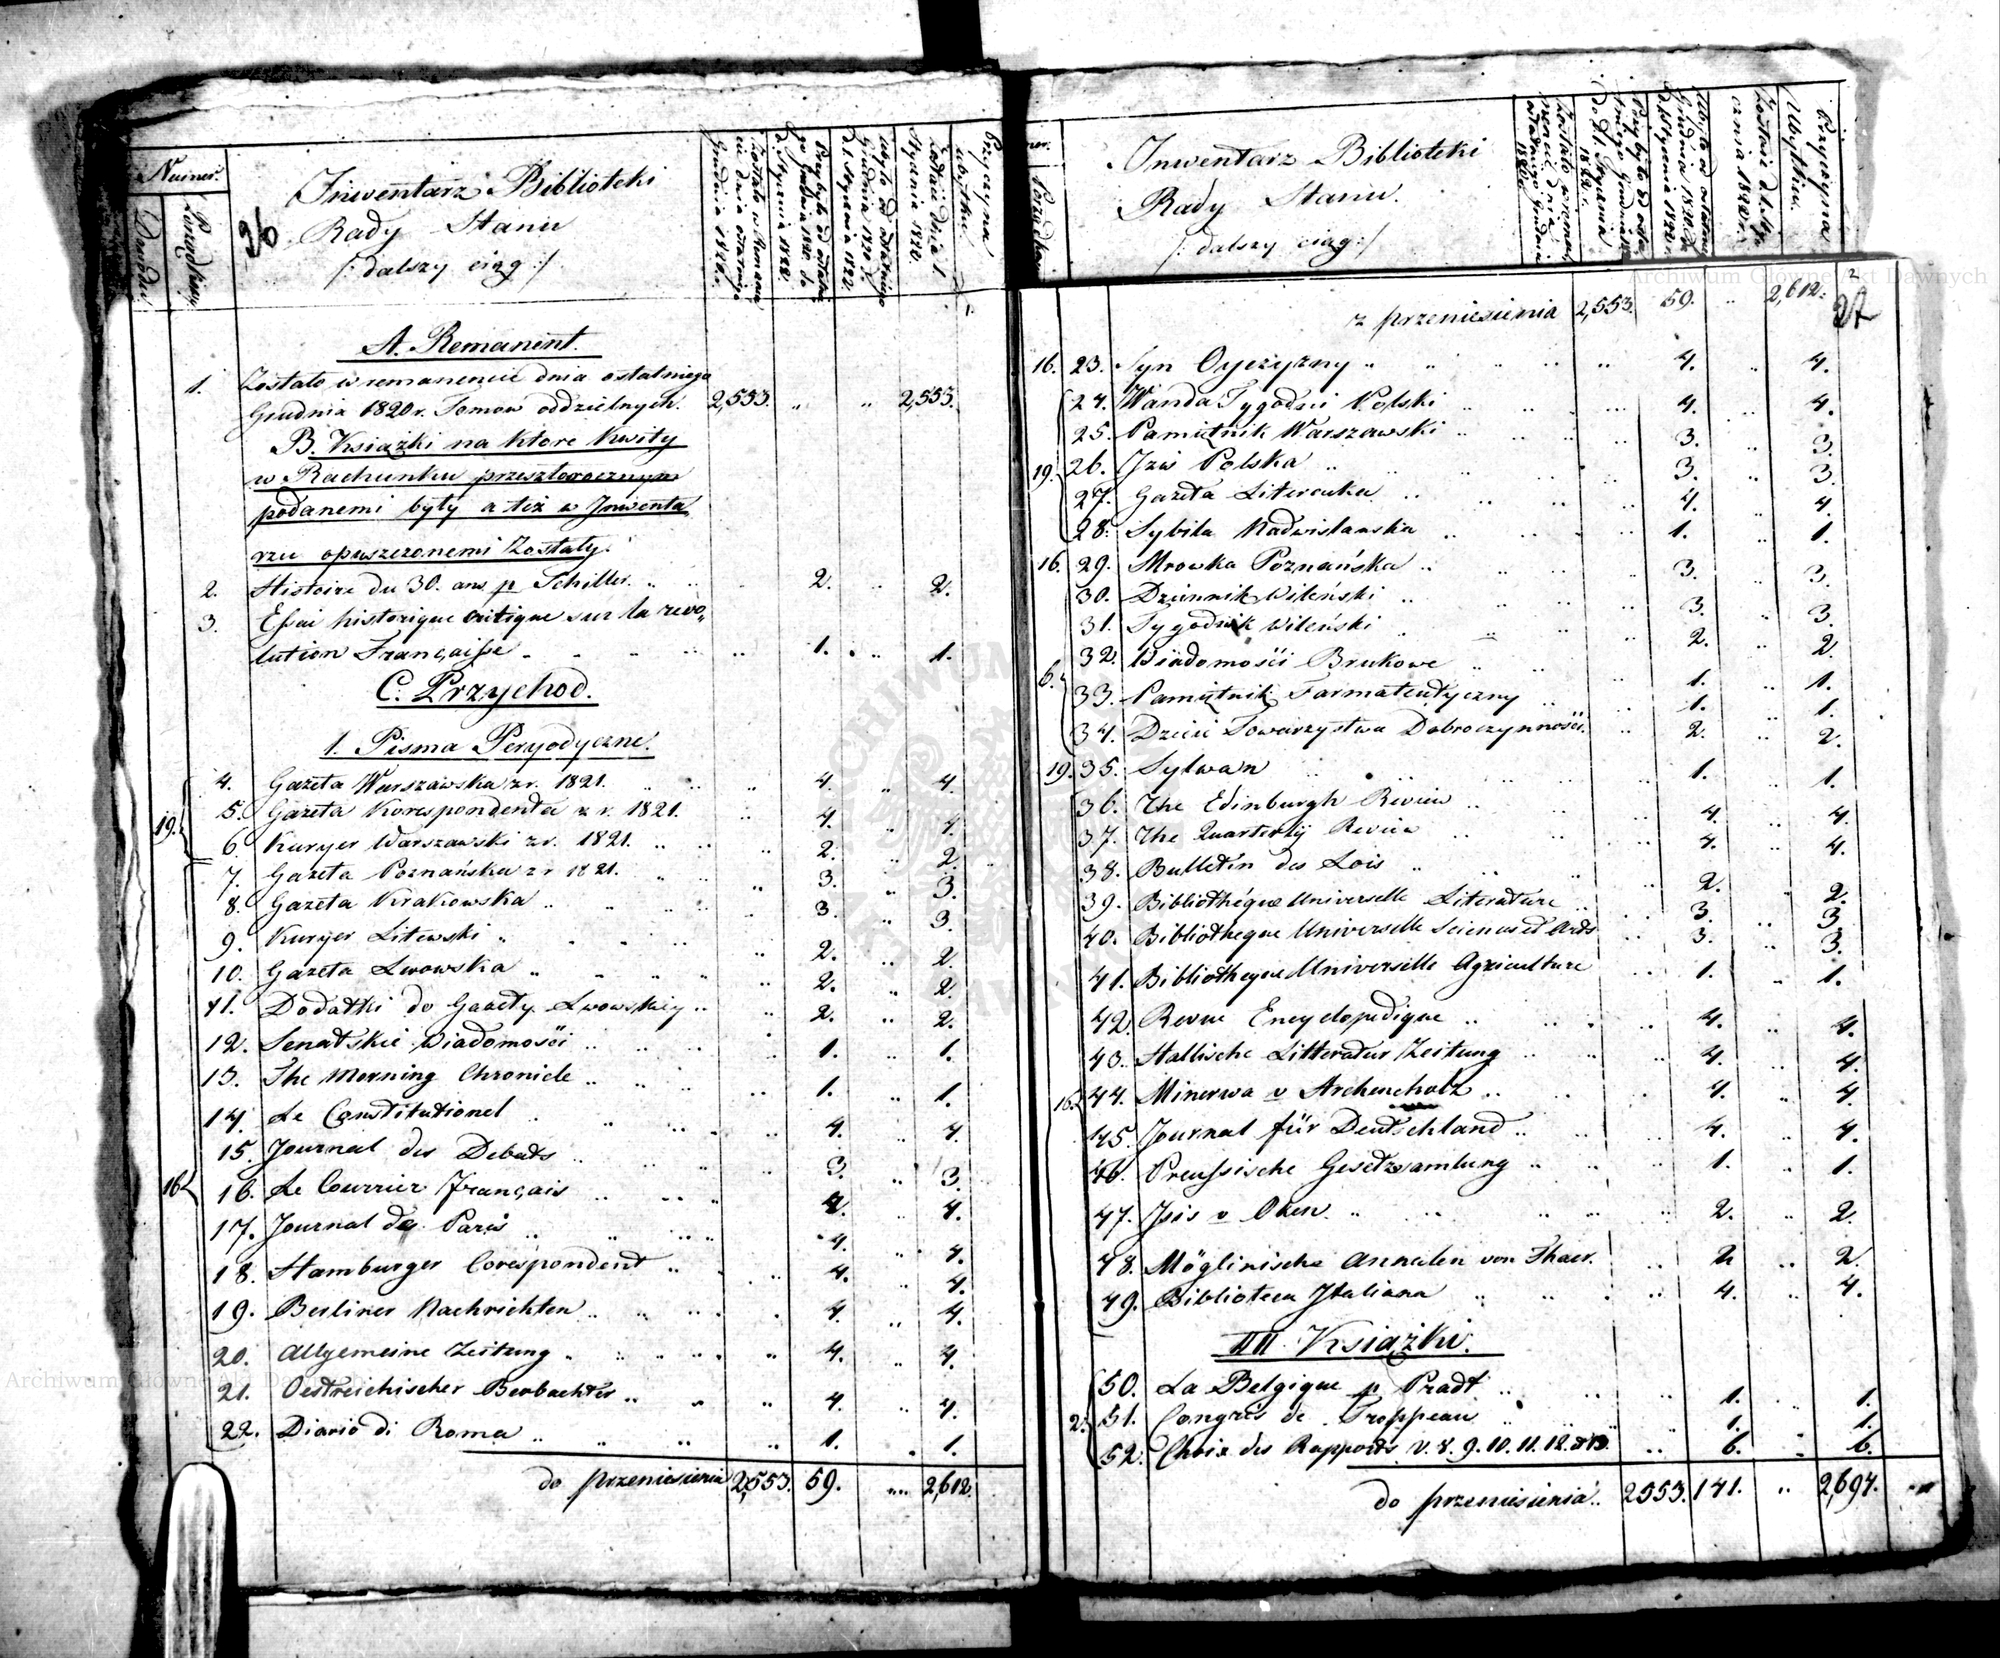 Numer.
Dawdu.
Porządkow.
26
Inwentarz Biblioteki
Rady Stanu
/: dalszy ciąg :/
Przyczyna
ubytku.
A. Remanent.
1. Zostało w remanencie dnia ostatniego
Grudnia 1820 r. Tomow oddzielnych. 2,553. „ „ 2,553.
B. Książki na ktore kwity
w Rachunku przeszłorocznym
podanemi były a też w Inwenta
rzu opuszczonemi Zostały.
2. Histoire du 30. ans p Schiller. „ „ „ 2. „ 2.
3. Essai historique critique sur la revo„
lution Française „ „ „ „ „ 1. „ 1.
C. Przychod.
1. Pisma Peryodyczne.
19.
4. Gazeta Warszawska z r. 1821. „ „ „ 4. „ 4.
5. Gazeta Korespondenta z r. 1821. „ 4. „ 4.
6. Kuryer Warszawski z r. 1821. „ „ „ 2. „ 2.
16.
7. Gazeta Poznańska z r 1821. „ „ „ 3. „ 3.
8. Gazeta Krakowska „ „ „ „ 3. „ 3.
9. Kuryer Litewski „ „ „ „ 2. „ 2.
10. Gazeta Lwowska „ „ „ „ 2. „ 2.
11. Dodatki do Gazety Lwowskiey „ „ 2. „ 2.
12. Senatskie Wiadomości „ „ „ „ 1. „ 1.
13. The Morning Chronicle „ „ „ „ 1. „ 1.
14. Le Constitutionel „ „ „ „ 4. „ 4.
15. Journal des Debats „ „ „ „ 3. „ 3.
16. Le Courrier Français „ „ „ 4. „ 4.
17. Journal de Paris „ „ „ 4. „ 4.
18. Hamburger Corespondent „ „ „ 4. „ 4.
19. Berliner Nachrichten „ „ „ „ 4. „ 4.
20. Allgemeine Zeitung „ „ „ „ „ 4. „ 4.
21. Oestreichischer Beobachter „ „ „ 4. „ 4.
22. Diario di Roma „ „ „ „ 1. „ 1.
do przeniesienia 2,553. 59. „ „ 2,612.
Porządkow.
Inwentarz Biblioteki
Rady Stanu.
/: dalszy ciąg :/
Przyczyna
Ubytku.
2
27
z przeniesienia 2,553. 59. „ 2,612.
16. 23. Syn Oyczyzny „ „ „ „ „ 4. „ 4.
19.
24. Wanda Tygodnik Polski „ „ „ 4. „ 4.
25. Pamiętnik Warszawski „ „ „ 3. „ 3.
26. Izis Polska „ „ „ „ 3. „ 3.
27. Gazeta Literacka „ „ „ „ 4. „ 4.
28. Sybila Nadwislanska „ „ „ 1. „ 1.
16. 29. Mrowka Poznańska „ „ „ „ 3. „ 3.
30. Dziennik Wileński „ „ „ „ 3. „ 3.
31. Tygodnik Wileński „ „ „ 2. „ 2.
6.
32. Wiadomości Brukowe „ „ „ 1. „ 1.
33. Pamiętnik Farmaceutyczny „ „ 1. „ 1.
34. Dzieie Towarzystwa Dobroczynności. „ 2. „ 2.
19. 35. Sylwan „ „ „ „ 1. „ 1.
16.
36. The Edinburgh Review „ „ „ 4. „ 4.
37. The Quarterly Review „ „ „ 4. „ 4.
38. Bulletin des Lois „ „ „ „ 2. „ 2.
39. Bibliothéque Universelle Literature „ „ 3. „ 3.
40. Bibliothéque Universelle Sciences et Arts „ 3. „ 3.
41. Bibliotheque Universelle Agriculture „ „ 1. „ 1.
42. Revue Encyclopedique „ „ „ „ 4. „ 4.
43. Hallische Litteratur Zeitung „ „ „ 4. „ 4.
44. Minerwa v Archencholz „ „ „ 4. „ 4.
45. Journal für Deutschland „ „ „ 4. „ 4.
46. Preussische Gesetzsamlung „ „ „ 1. „ 1.
47. Isis v Oken. „ „ „ „ „ 2. „ 2.
48. Möglinische Annalen von Thaer. „ 2 „ 2.
49. Biblioteca Italiana „ „ „ „ 4. „ 4.
III Książki.
2.
50. La Belgique p Pradt „ „ „ 1. „ 1.
51. Congrés de Troppeau „ „ „ 1. „ 1.
52. Choix des Rapports v. 8. 9. 10. 11. 12. et 13. „ 6. „ 6.
do przeniesienia „ 2553. 141. „ 2,694.
Archiwum Główne Akt Dawnych
Archiwum Główne Akt Dawnych